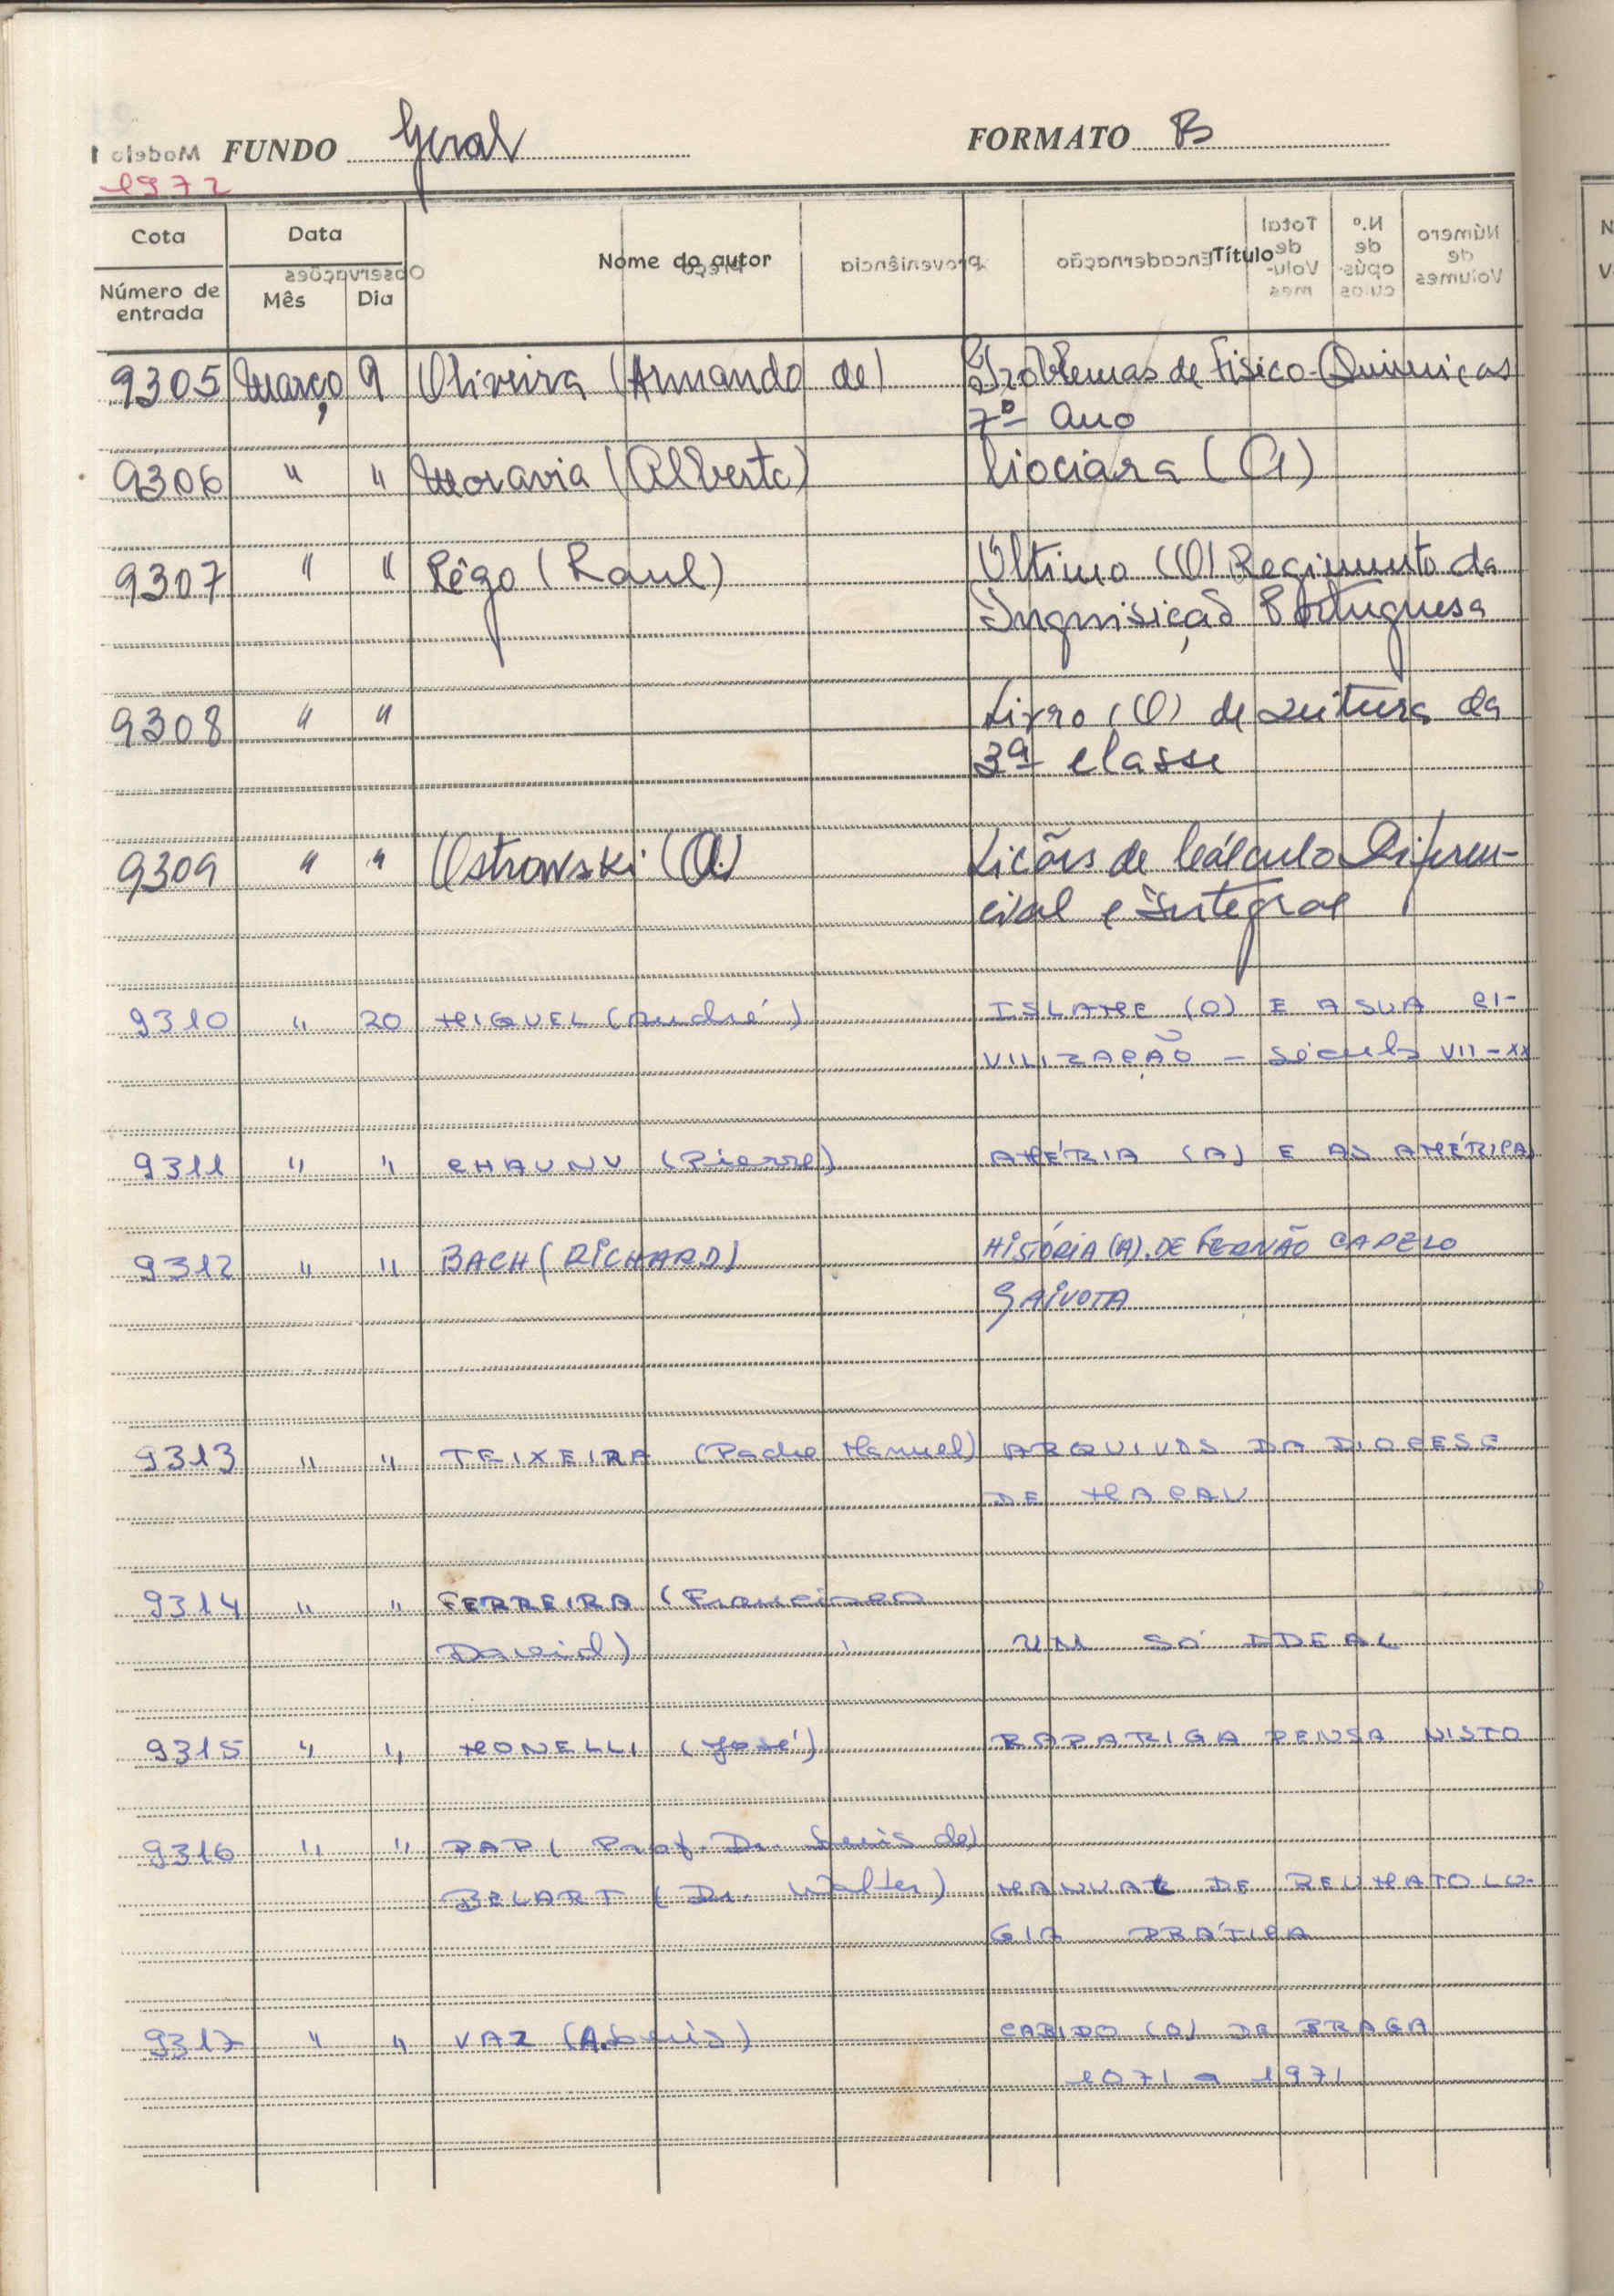 FUNDO Geral FORMATO B
Modelo 1
1972
Cota Data Nome do autor Título
Número de entrada Mês Dia
Observações Preço Proveniência Encadernação Total de Volumes N.º de opúsculos Número de Volumes
9305 Março 9 Oliveira (Armando de) Problemas de Fisico-Quimicas
7º ano
9306 " " Moravia (Alberto) Ciociara (A)
9307 " " Rêgo (Raul) Último (O) Regimento da
Inquisição Portuguesa
9308 " " Livro (O) de Leitura da
3ª classe
9309 " " Ostrowski (A.) Lições de Cálculo Diferen-
cial e Integral
9310 " 20 MIQUEL (André) ISLAME (O) E A SUA CI-
VILIZAÇÃO - Século VII-XX
9311 " " CHAUNU (Pierre) AMÉRIA (A) E AS AMÉRICAS
9312 " " BACH (RICHARD) HISTÓRIA (A) DE FERNÃO CAPELO
GAIVOTA
9313 " " TEIXEIRA (Padre Manuel) ARQUIVOS DA DIOCESE
DE MACAU
9314 " " FERREIRA (Francisco
David) UM SÓ IDEAL
9315 " " MONELLI (José) RAPARIGA PENSA NISTO
9316 " " PAP (Prof. Dr. Luis de)
BELART (Dr. Walter) MANUAL DE REUMATOLO-
GIA PRÁTICA
9317 " " VAZ (A. Luis) CABIDO (O) DE BRAGA
1071 a 1971